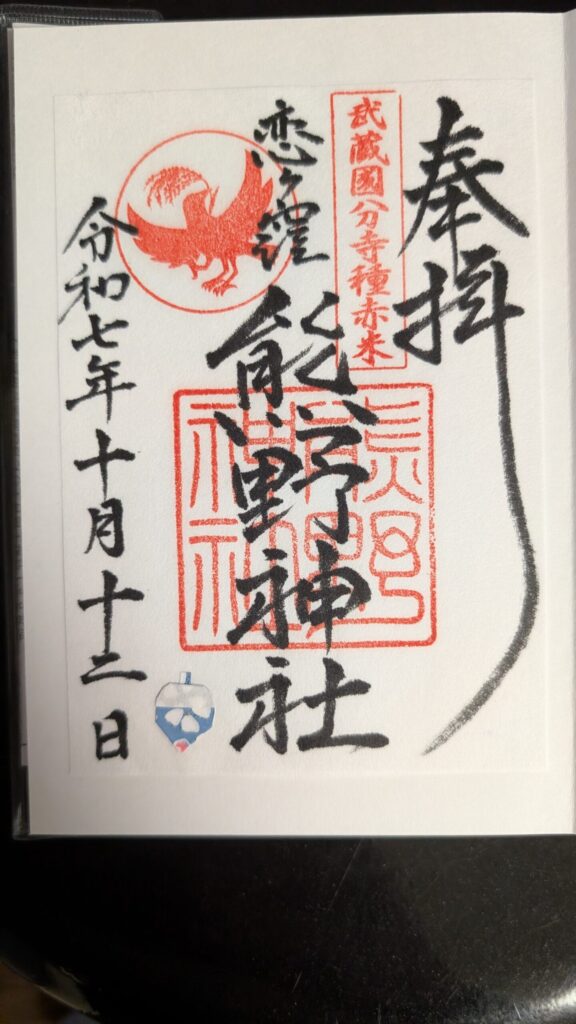 奉拝
武蔵國分寺種赤米
恋ヶ窪
熊野神社
熊野神社
令和七年十月十二日